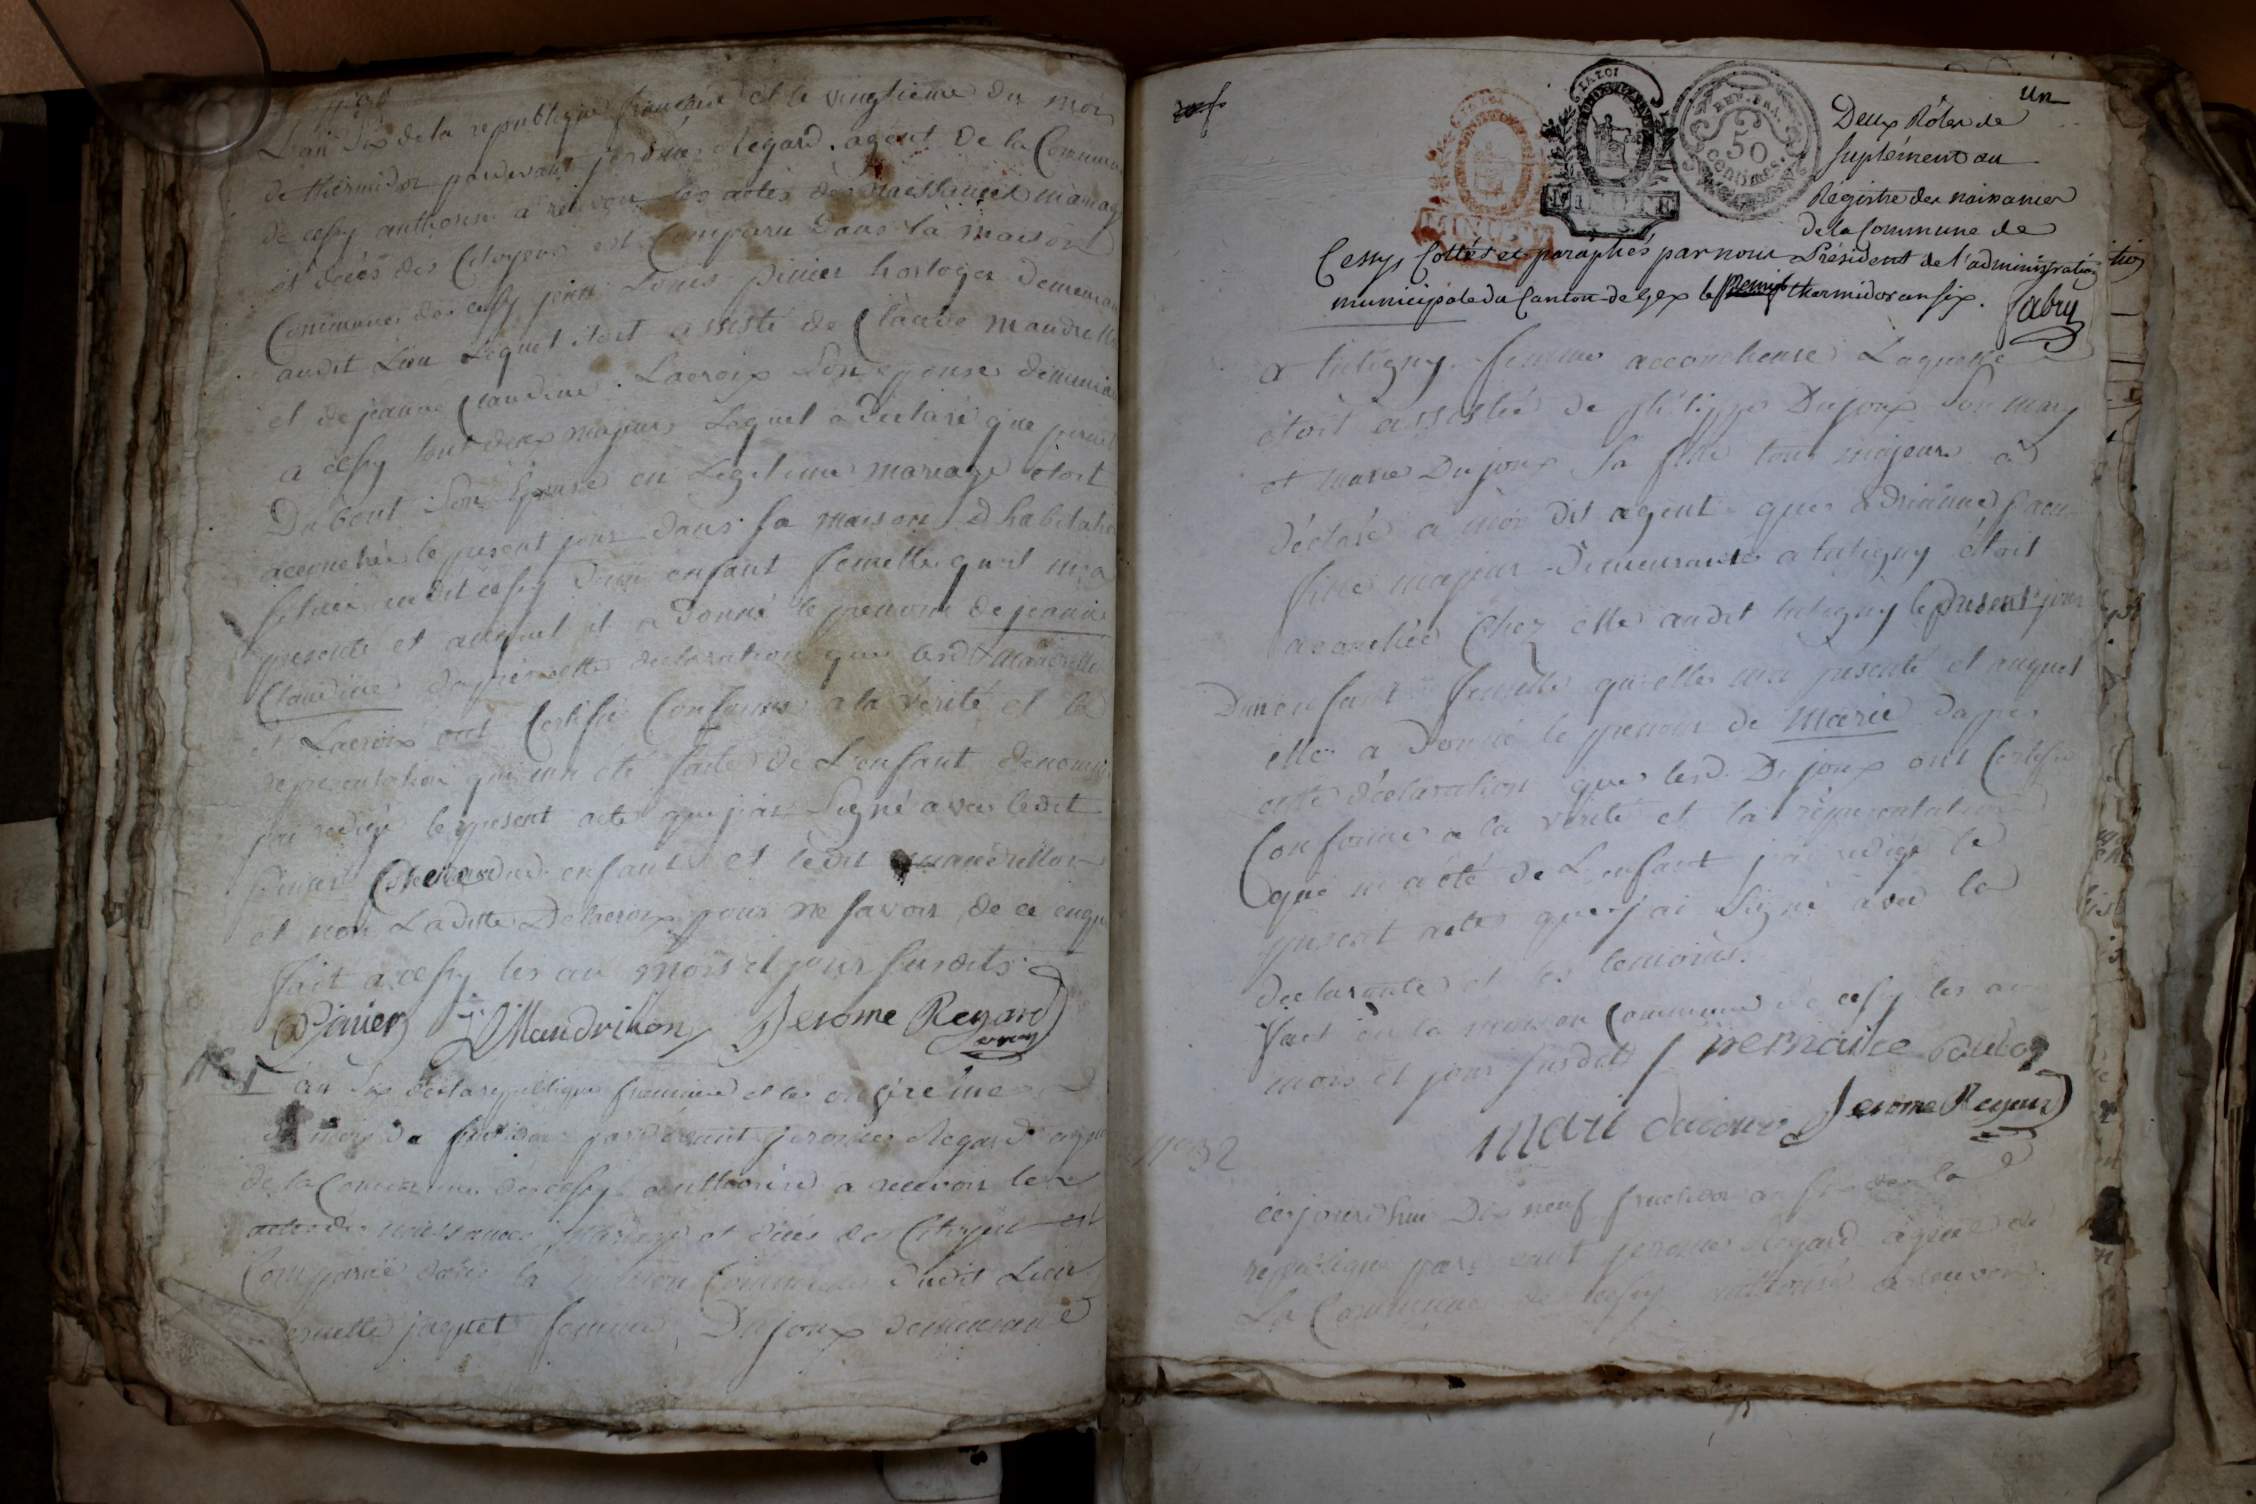 L'an six de la republique francaise et le vingtieme du mois
de thermidor pardevant jerôme Regard agent de la Commune
de cessy authorisé a recevoir les actes des naissances mariages
et décès des Citoyens est Comparu dans la maison
Commune de cessy jean Louis pinier horloger demeurant
audit Lieu Lequel étoit assisté de Claude mandrillon
et de jeanne Claudine Lacroix Son epouse demeurant
a cessy tout deux majeurs Lequel a declaré que
Dubout Son Epouse en Legitime mariage étoit
accouchée le present jour dans sa maison d'habitation
située audit cessy d'un enfant femelle qu'il m'a
presenté et auquel il a donné le prenom de jeanne
Claudine d'apres cette declaration que lesd Mandrillon
et Lacroix ont Certifié Conforme a la verité et la
representation qui m'a été faite de L'enfant denommé
j'ai redigé le present acte que j'ai Signé avec ledit
pinier enfant et ledit mandrillon
et non Laditte Delacroix pour ne savoir de ce enquis
fait a cessy les an mois et jour susdits
Pinier Mandrillon Jerome Regard
agent
N° 31
L'an Six de la republique francaise et le onzieme
du mois de fructidor pardevant jerome Regard agent
de la Commune de cessy authorisé a recevoir les
actes des naissances mariages et décès des Citoyens est
Comparue dans la maison Commune dudit Lieu
jaquet femme Dujoux demeurant
un
Deux Rôles de
suplément au
Régistre des naissances
de la Commune de
Cessy, Cottés et paraphés par nous Président de l'administration
municipale du Canton de Gex le thermidor an six. fabry
a tutigny femme accoucheuse Laquelle
étoit assistée de philippe Dujoux Son mary
et marie Dujoux Sa fille tous majeurs a
déclaré a moi dit agent que adrianne
fille majeur demeurante a tutigny étoit
acouchée Chez elle audit tutigny le present jour
D'un enfant femelle qu'elle m'a presenté et auquel
elle a donné le prenom de Marie d'apres
cette déclaration que lesd. Dujoux ont Certifié
Conforme a la verité et la representation
que m'a été de L'enfant j'ai redigé le
present acte que j'ai Signé avec la
declarante et les temoins.
fait en la maison Commune de cessy les an
mois et jour susdits
Mari Jerome Regard
N° 32
cejourd'hui Dix neuf fructidor an six de la
republique pardevant jerome Regard agent de
La Commune de cessy authorisé a recevoir